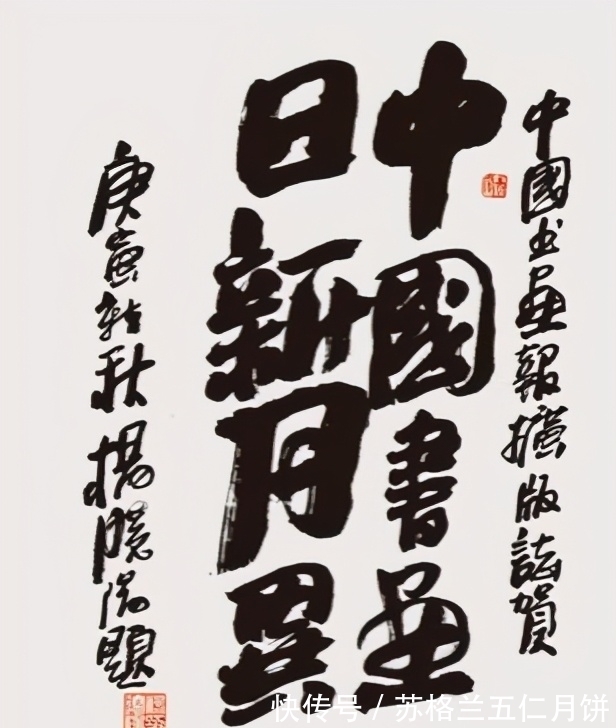 中國书畫報擴版誌賀
中國書畫
日新月異
庚寅秋楊曉陽題
快传号 / 苏格兰五仁月饼